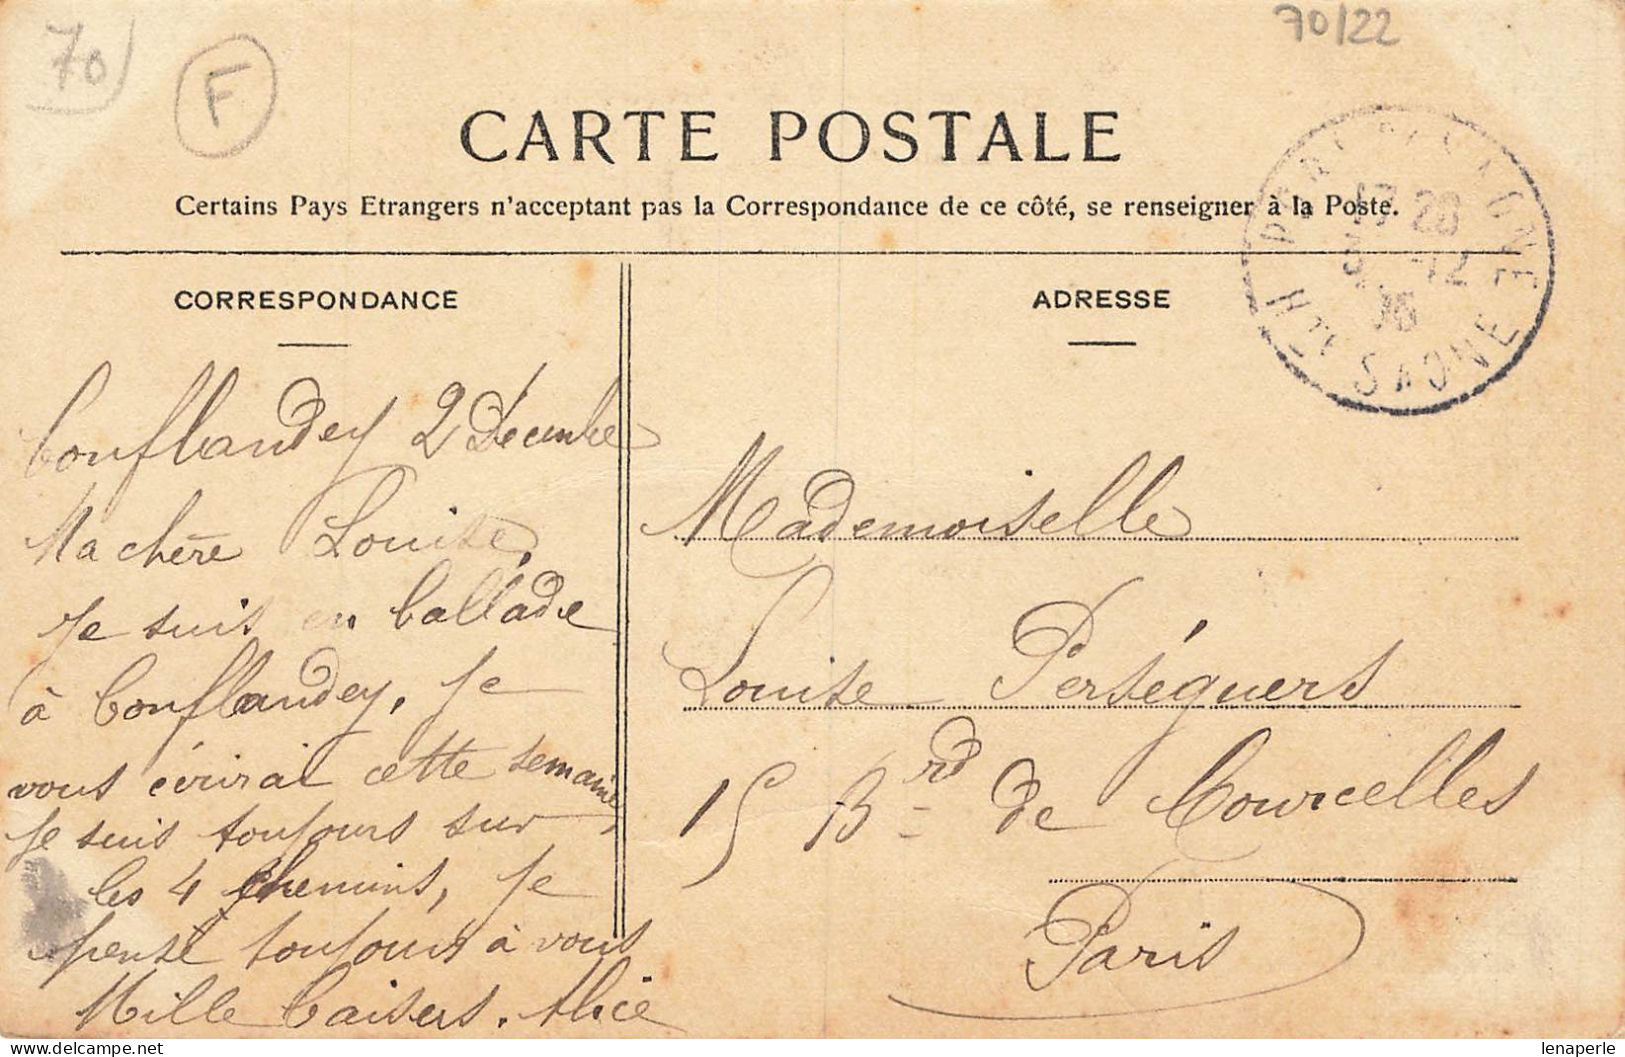 70
F
70/22
CARTE POSTALE
Certains Pays Etrangers n'acceptant pas la Correspondance de ce côté, se renseigner à la Poste.
CORRESPONDANCE
Conflandey 2 Décembre
Ma chère Louise,
Je suis en ballade
à Conflandey, je
vous écrirai cette semaine,
je suis toujours sur
les 4 chemins, je
pense toujours à vous
Mille baisers. Alice
ADRESSE
Mademoiselle
Louise Perséguers
15 Brd de Courcelles
Paris
HTE SAONE
lenaperle